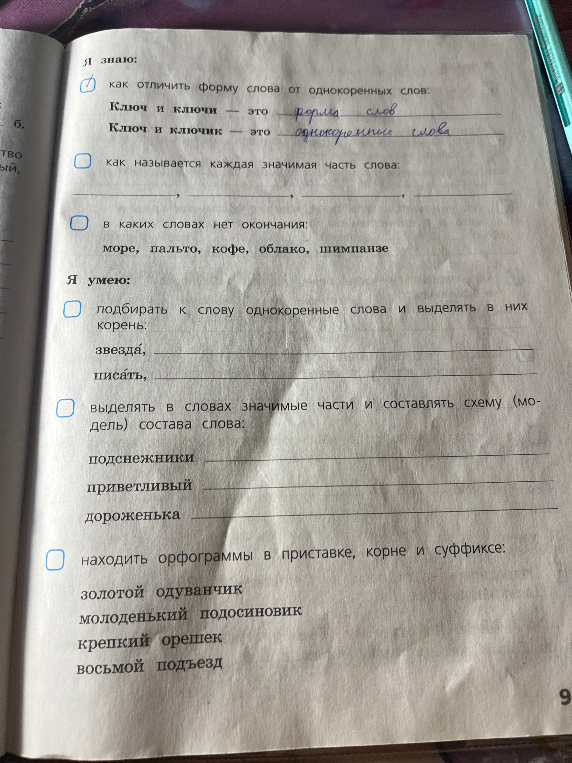 б.
тво
ый,
Я знаю:
как отличить форму слова от однокоренных слов:
Ключ и ключи — это форма слов
Ключ и ключик — это однокоренные слова
как называется каждая значимая часть слова:
, , ,
в каких словах нет окончания:
море, пальто, кофе, облако, шимпанзе
Я умею:
подбирать к слову однокоренные слова и выделять в них
корень:
звезда́,
писа́ть,
выделять в словах значимые части и составлять схему (мо-
дель) состава слова:
подснежники
приветливый
дороженька
находить орфограммы в приставке, корне и суффиксе:
золотой одуванчик
молоденький подосиновик
крепкий орешек
восьмой подъезд
9